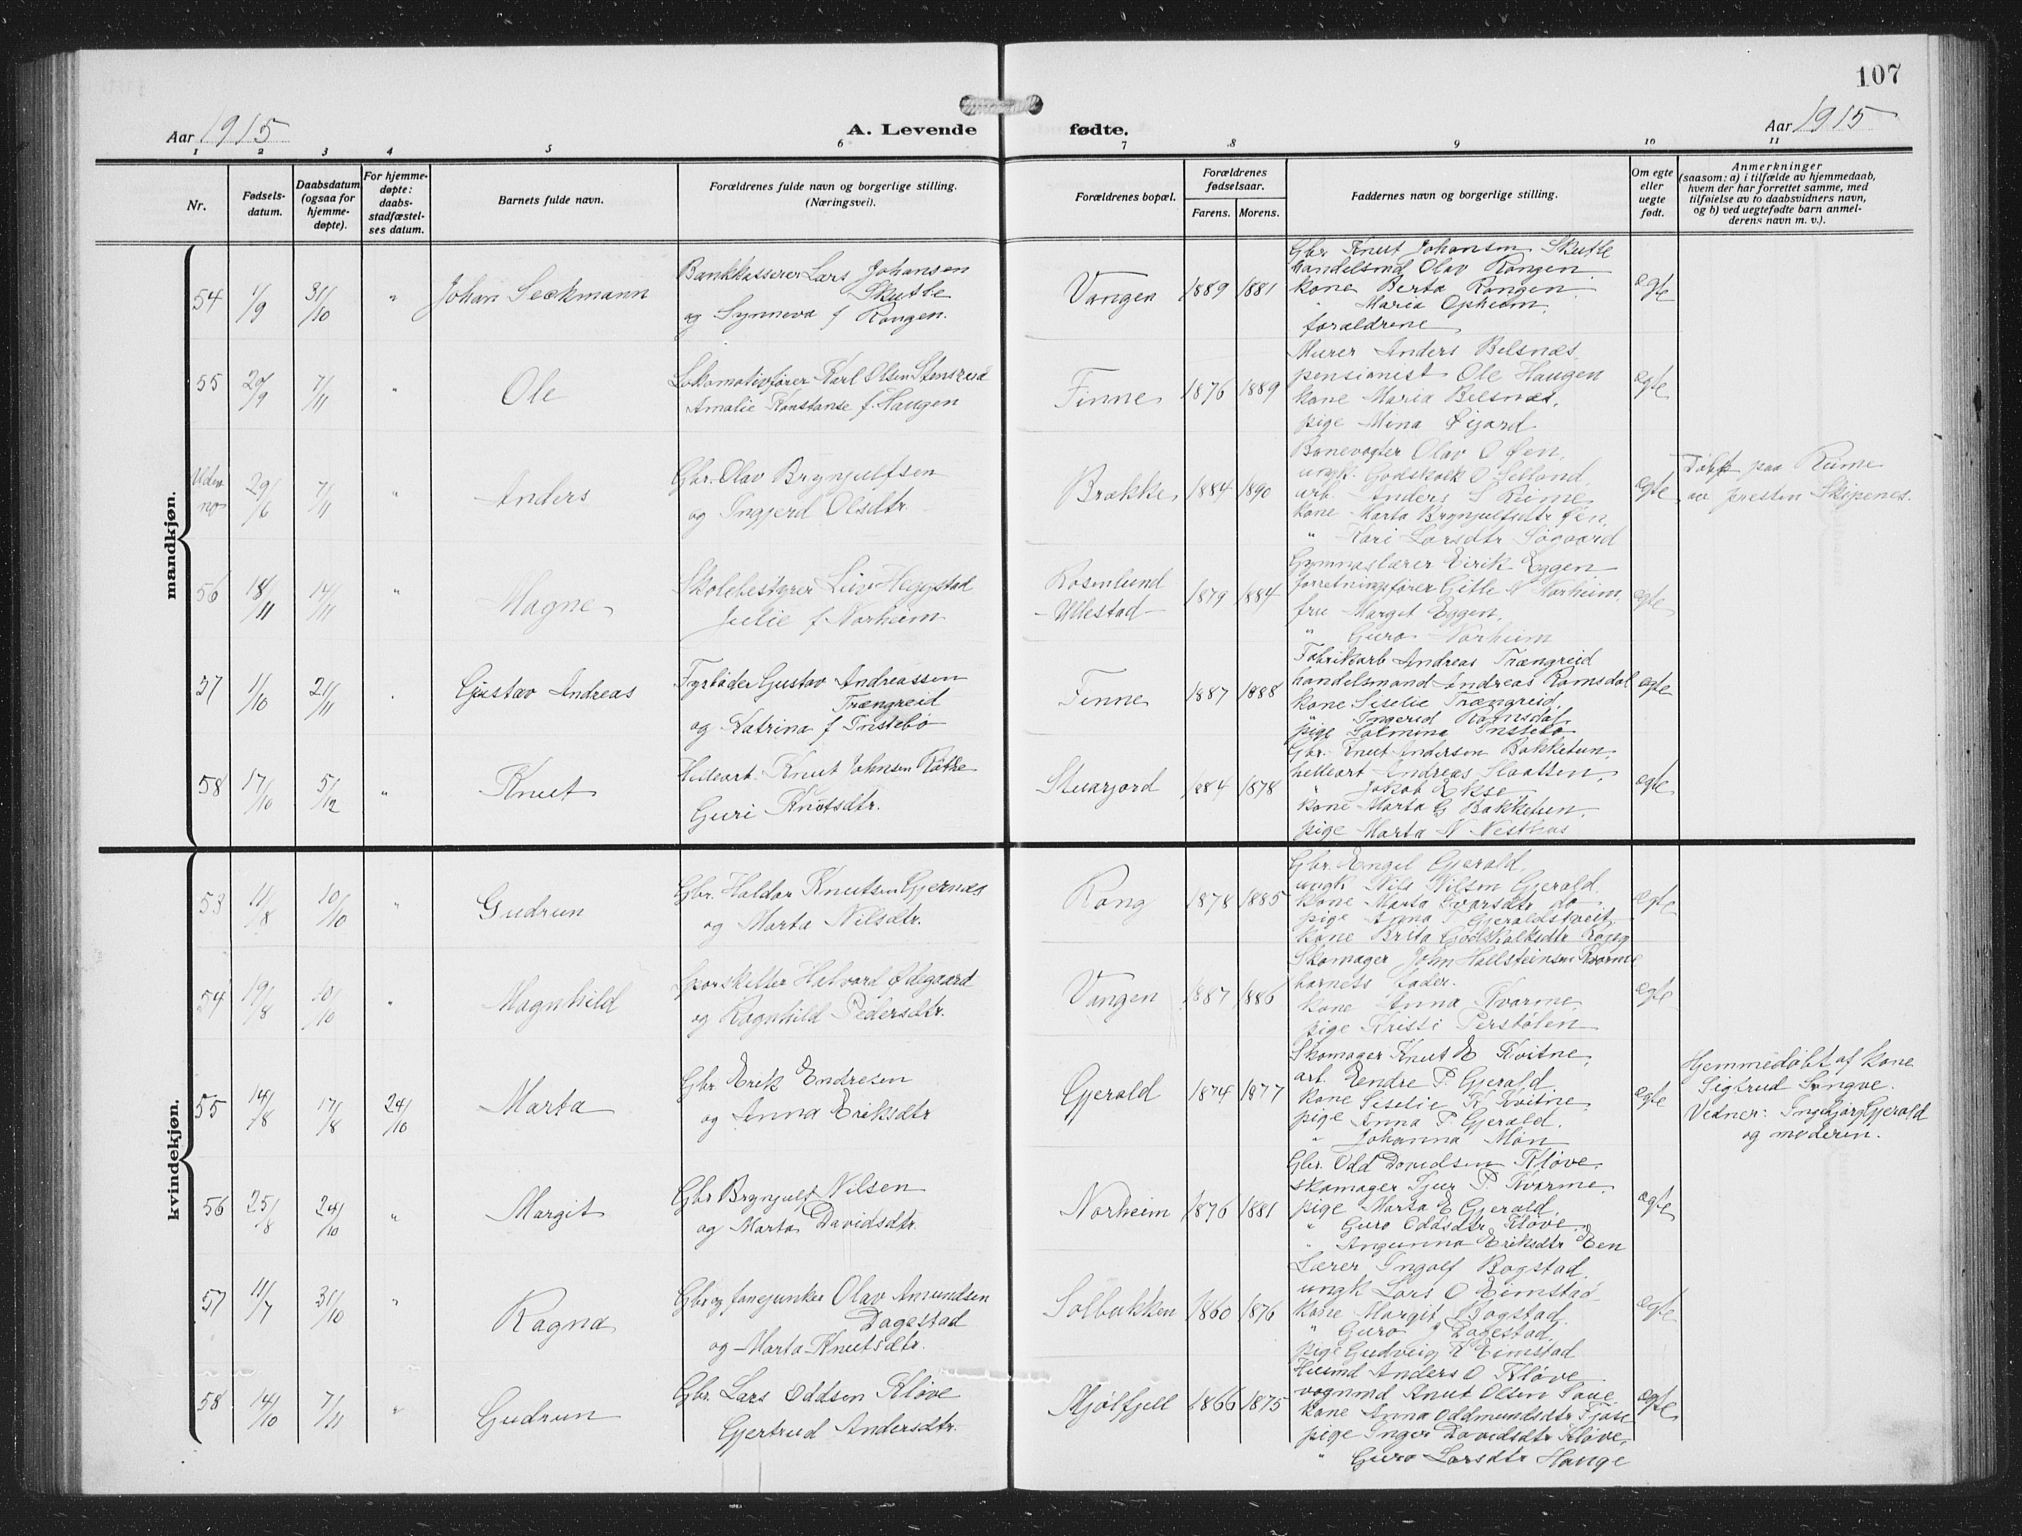 107
Aar 1915
A. Levende fødte.
Aar 1915
1 2 3 4 5 6 7 8 9 10 11
Nr.
Fødsels-
datum.
Daabsdatum
(ogsaa for
hjemme-
døpte).
For hjemme-
døpte:
daabs-
stadfæstel-
ses datum.
Barnets fulde navn.
Forældrenes fulde navn og borgerlige stilling.
(Næringsvei).
Forældrenes bopæl.
Forældrenes
fødselsaar.
Farens. Morens.
Faddernes navn og borgerlige stilling.
Om egte
eller
uegte
født.
Anmerkninger
(saasom: a) i tilfælde av hjemmedaab,
hvem der har forrettet samme, med
tilføielse av to daabsvidners navn,
og b) ved uegtefødte barn anmel-
derens navn m. v.).
mandkjøn.
54 1/9 31/10 " Johan Seckmann
Bankkasserer Lars Johansen
Skutle
og Synneva f Rongen.
Vangen 1889 1881
Gbr. Knut Johansen Skutle
handelsmd Olav Rongen
kone Berta Rongen
" Maria Opheim.
forældrene
egte
55 20/9 7/11 " Ole
Lokomotivfører Karl Olsen Stensrud
Amalie Konstanse f. Haugen
Finne 1876 1889
Murer Anders Belsnæs
pensionist Ole Haugen
kone Maria Belsnæs,
pige Mina Øijord
egte
Uden no 29/6 7/11 " Anders
Gbr. Olav Brynjulfsen
og Ingjerd Olsdtr.
Brække 1884 1890
Banevogter Olav O Øen,
ungk. Godskalk O Selland,
arb. Anders S Rime
kone Marta Brynjulfsdtr Øen,
" Kari Larsdtr Søgaard
egte
Døbt paa Rime
av presten Skipenes.
56 18/11 14/11 " Magne
Skolebestyrer Liev Heggstad
Julie f. Norheim
Rosenlund
Ullestad
1879 1884
Gymnaslærer Eirik Eggen
forretningsfører Gitle N Norheim,
fru Margit Eggen,
" Guro Norheim
egte
37 1/10 21/11 Gustav Andreas
Fyrbøder Gustav Andreassen
Trængreid
og Katrina f Instebø
Finne 1887 1888
Fabrikarb Andreas Trængreid
handelsmand Andreas Ramsdal
kone Siselie Trængreid,
" Ingerid Ramsdal,
pige Salmina Instebø
egte
58 17/10 5/12 " Knut
Hellearb. Knut Johnsen Røthe
Guri Knutsdtr.
1884 1878
Gbr. Knut Andersen Bakketun,
hellearb Andreas Slaatten,
" Jakob Ekse
kone Marta G Bakketun,
pige Marta N Nesthus
egte
kvindekjøn.
53 11/8 10/10 " Gudrun
Gbr. Haldor Knutsen Gjernes
og Marta Nilsdtr.
Rong 1878 1885
Gbr. Engel Gjerald,
ungk Nils Nilsen Gjerald
kone Marta Ivarsdtr do
pige Anna P Gjeraldstveit,
kone Brita Godskalksdtr Rong
egte
54 19/8 10/10 " Magnhild
Sporskifter Halvard Ødegaard
og Ragnhild Pedersdtr.
Vangen 1887 1886
Skomager John Hallsteinsen Kvarme
barnets fader.
kone Anna Kvarme,
pige Kristi Perstølen
egte
55 14/8 17/8 24/10 Marta
Gbr. Erik Endresen
og Anna Eriksdtr
Gjerald 1874 1877
Skomager Knut E Kvitne,
arb. Eendre P. Gjerald,
kone Siselie K Kvitne,
pige Anna P. Gjerald.
" Johanna Møn
egte
Hjemmedøbt af kone
Sigtrud Tungve.
Vidner: Ingebjørg Gjerald
og moderen.
56 25/8 24/10 " Margit
Gbr Brynjulf Nilsen
og Marta Davidsdtr.
Norheim 1876 1881
Gbr. Odd Davidsen Kløve,
skomager Sjur P Kvarme,
pige Marta E Gjerald,
" Guro Oddsdtr Kløve
" Angunna Eriksdtr Een
egte
57 11/7 31/10 " Ragna
Gbr og fanejunker Olav Amundsen
Dagestad
og Marta Knutsdtr.
Solbakken 1860 1876
Lærer Ingolf Bogstad,
ungk Lars O Eimstad
kone Margit Bogstad,
" Guro Dagestad,
pige Gudveig K Eimstad
egte
58 14/10 7/11 " Gudrun
Gbr. Lars Oddsen Kløve
Gjertrud Andersdtr.
Mjølfjell 1866 1875
Husmd Anders O Kløve
vognmd Knut Olsen
kone Anna Oddmundsdtr Fjose
pige Inger Davidsdtr Kløve,
" Guro Larsdtr Hauge
egte